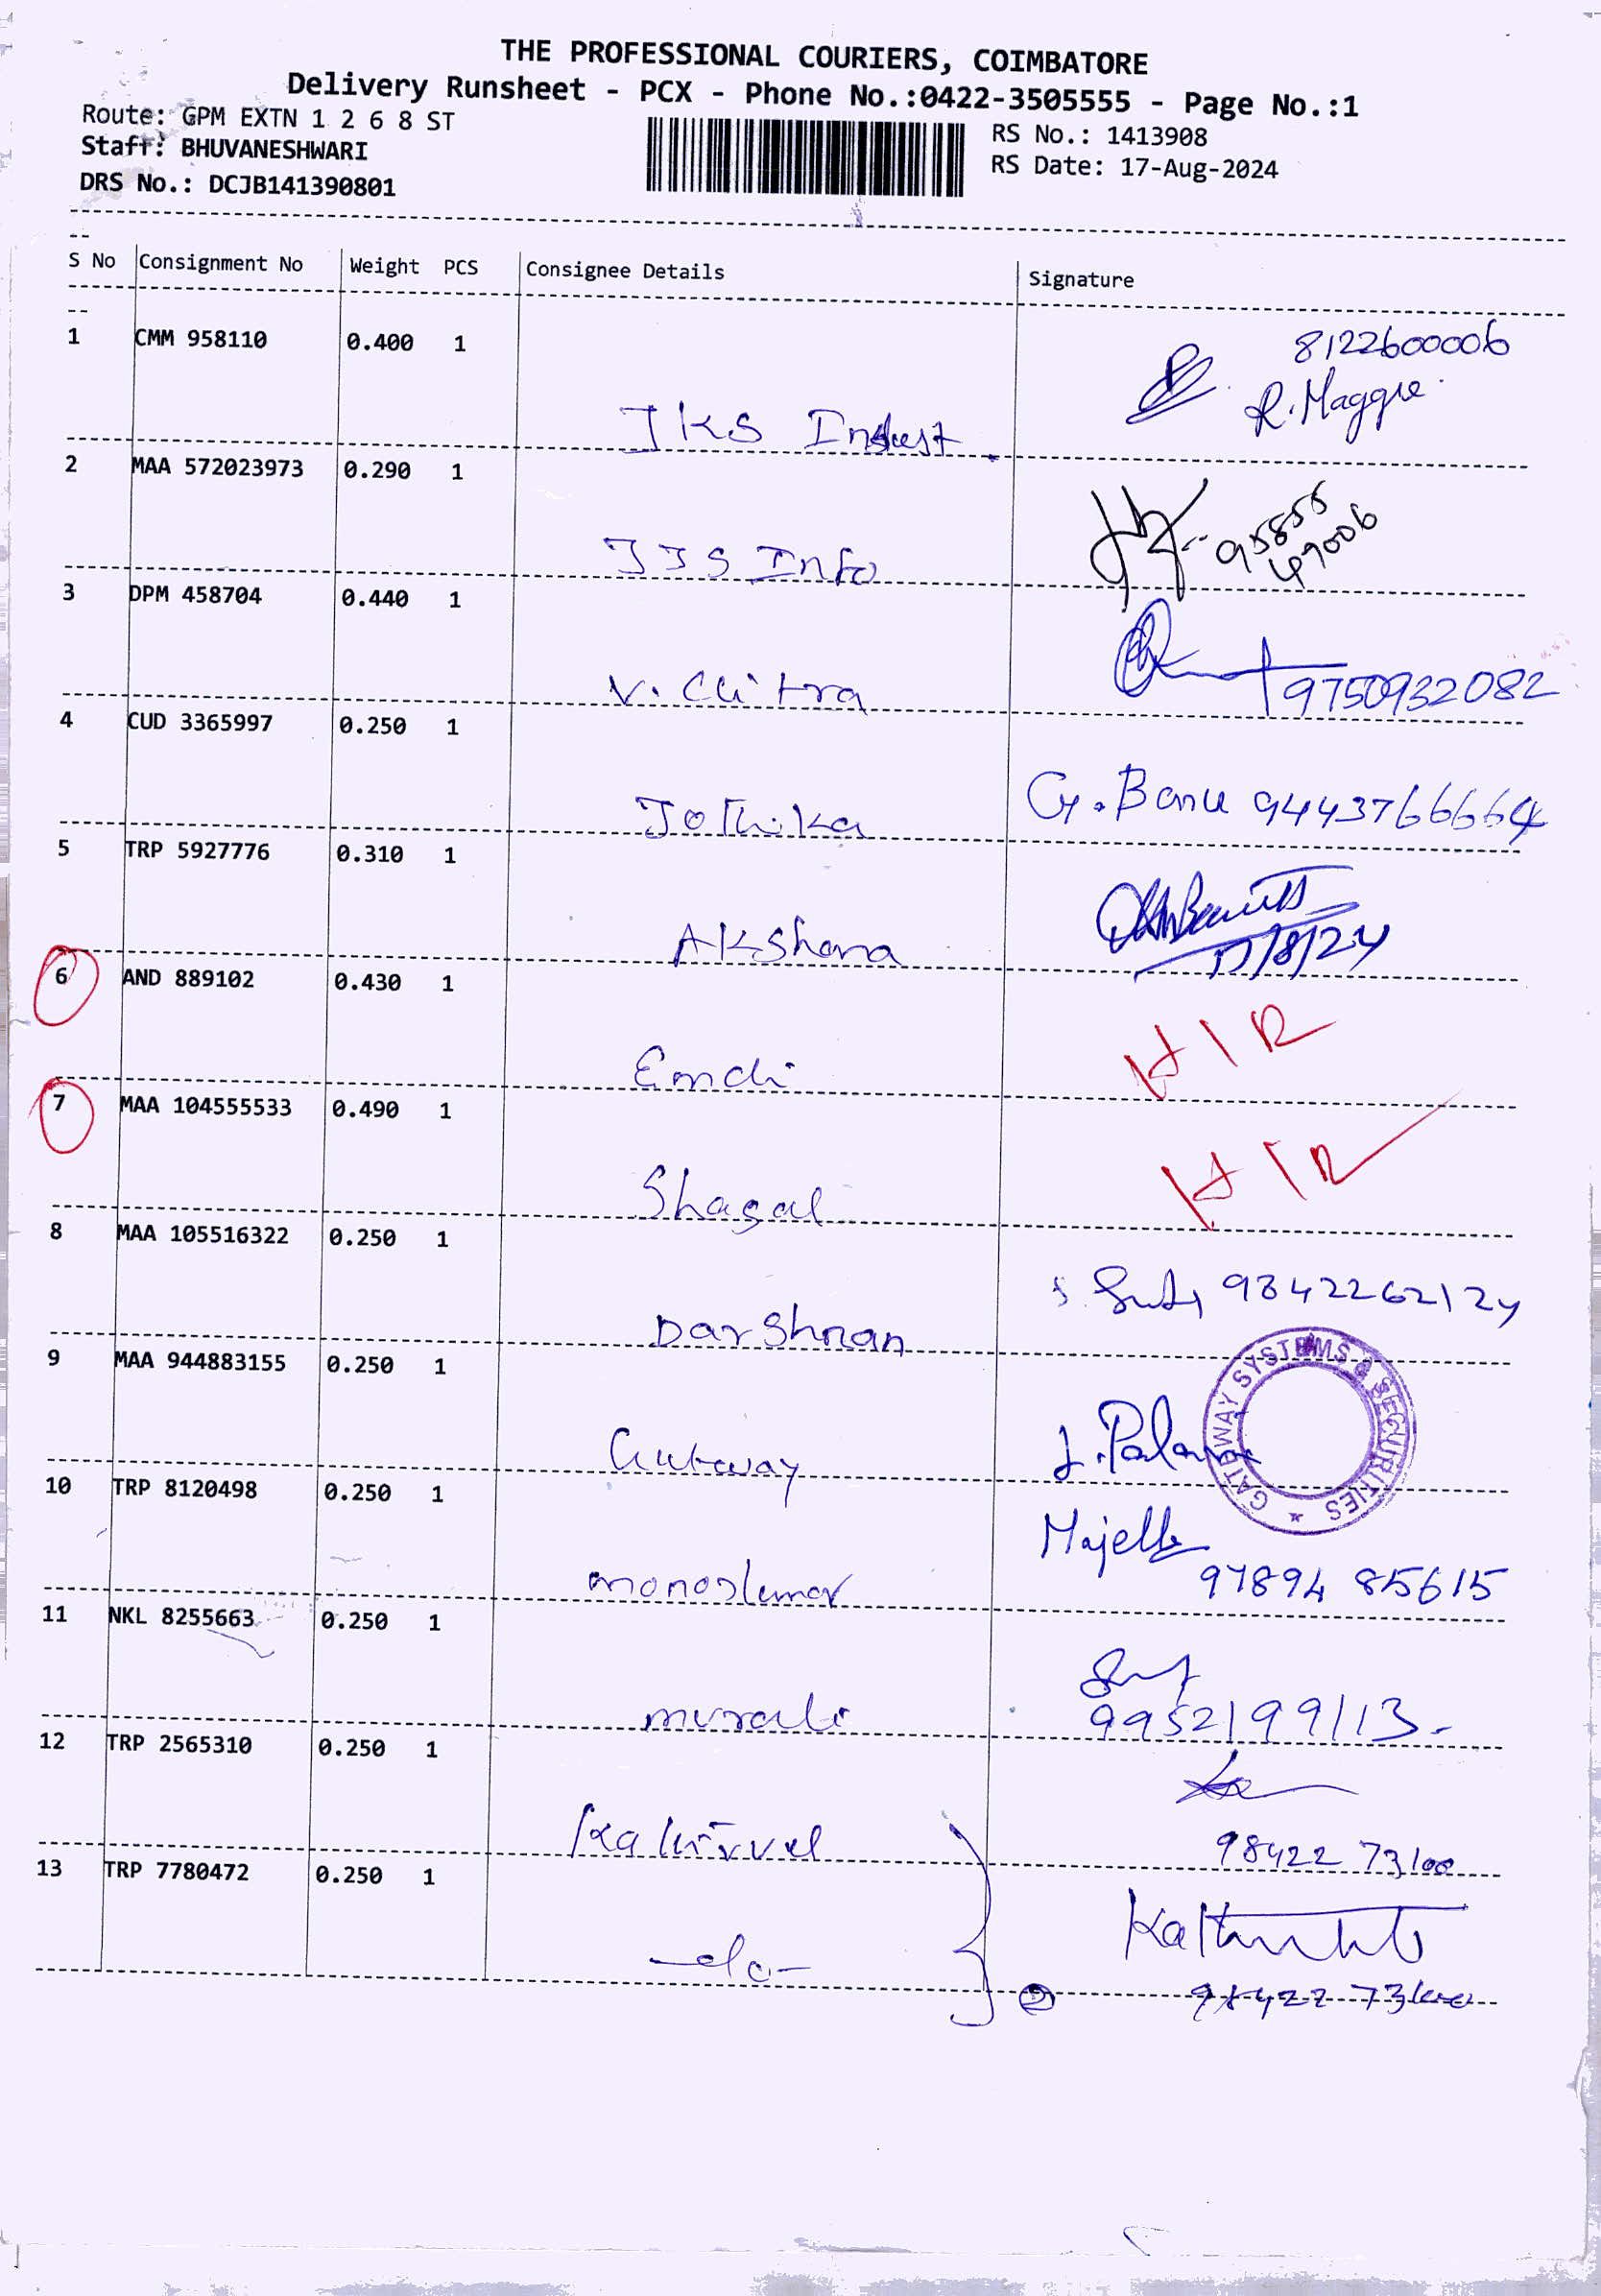 THE PROFESSIONAL COURIERS, COIMBATORE
Delivery Runsheet - PCX - Phone No.:0422-3505555 - Page No.:1
Route: GPM EXTN 1 2 6 8 ST
RS No.: 1413908
Staff: BHUVANESHWARI
RS Date: 17-Aug-2024
DRS No.: DCJB141390801
S No Consignment No Weight PCS Consignee Details Signature
1 CMM 958110 0.400 1
8122600006
R. Maggie
JKS Indust.
2 MAA 572023973 0.290 1
95855
49006
JJS Info
3 DPM 458704 0.440 1
V. Chitra
9750932082
4 CUD 3365997 0.250 1
Jothika
G. Banu 9443766664
5 TRP 5927776 0.310 1
Akshara
17/8/24
6 AND 889102 0.430 1
H I R
Emdi
7 MAA 104555533 0.490 1
H I R
Shagal
8 MAA 105516322 0.250 1
9842262124
Darshnan
9 MAA 944883155 0.250 1
GATEWAY SYSTEMS & SECURITIES
Gateway
10 TRP 8120498 0.250 1
Majella
97894 85615
11 NKL 8255663 0.250 1
murali
9952199113-
12 TRP 2565310 0.250 1
Kathirvel
98422 73100
13 TRP 7780472 0.250 1
-do-
2
98422 73100